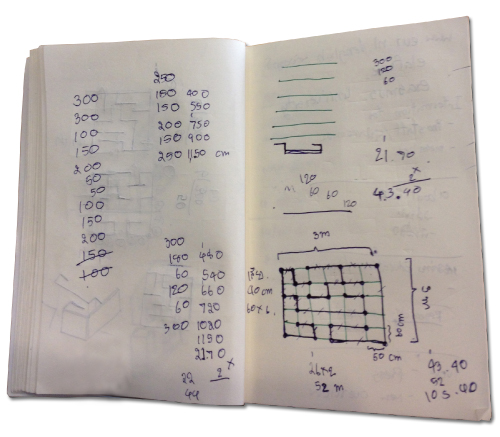 300
300
100
150
200
50
50
100
150
200
150
100
250
150 400
150 550
200 750
150 900
250 1150 cm
300
180 480
60 540
120 660
60 720
300 1020
1150
2170
2 x
22
44
300
180
60
21.70
2 x
43.40
120
60
60
120
3m
40 cm
60 x 6
3m
60 cm
60 cm
26 x 2
52 m
43.40
52
105.40